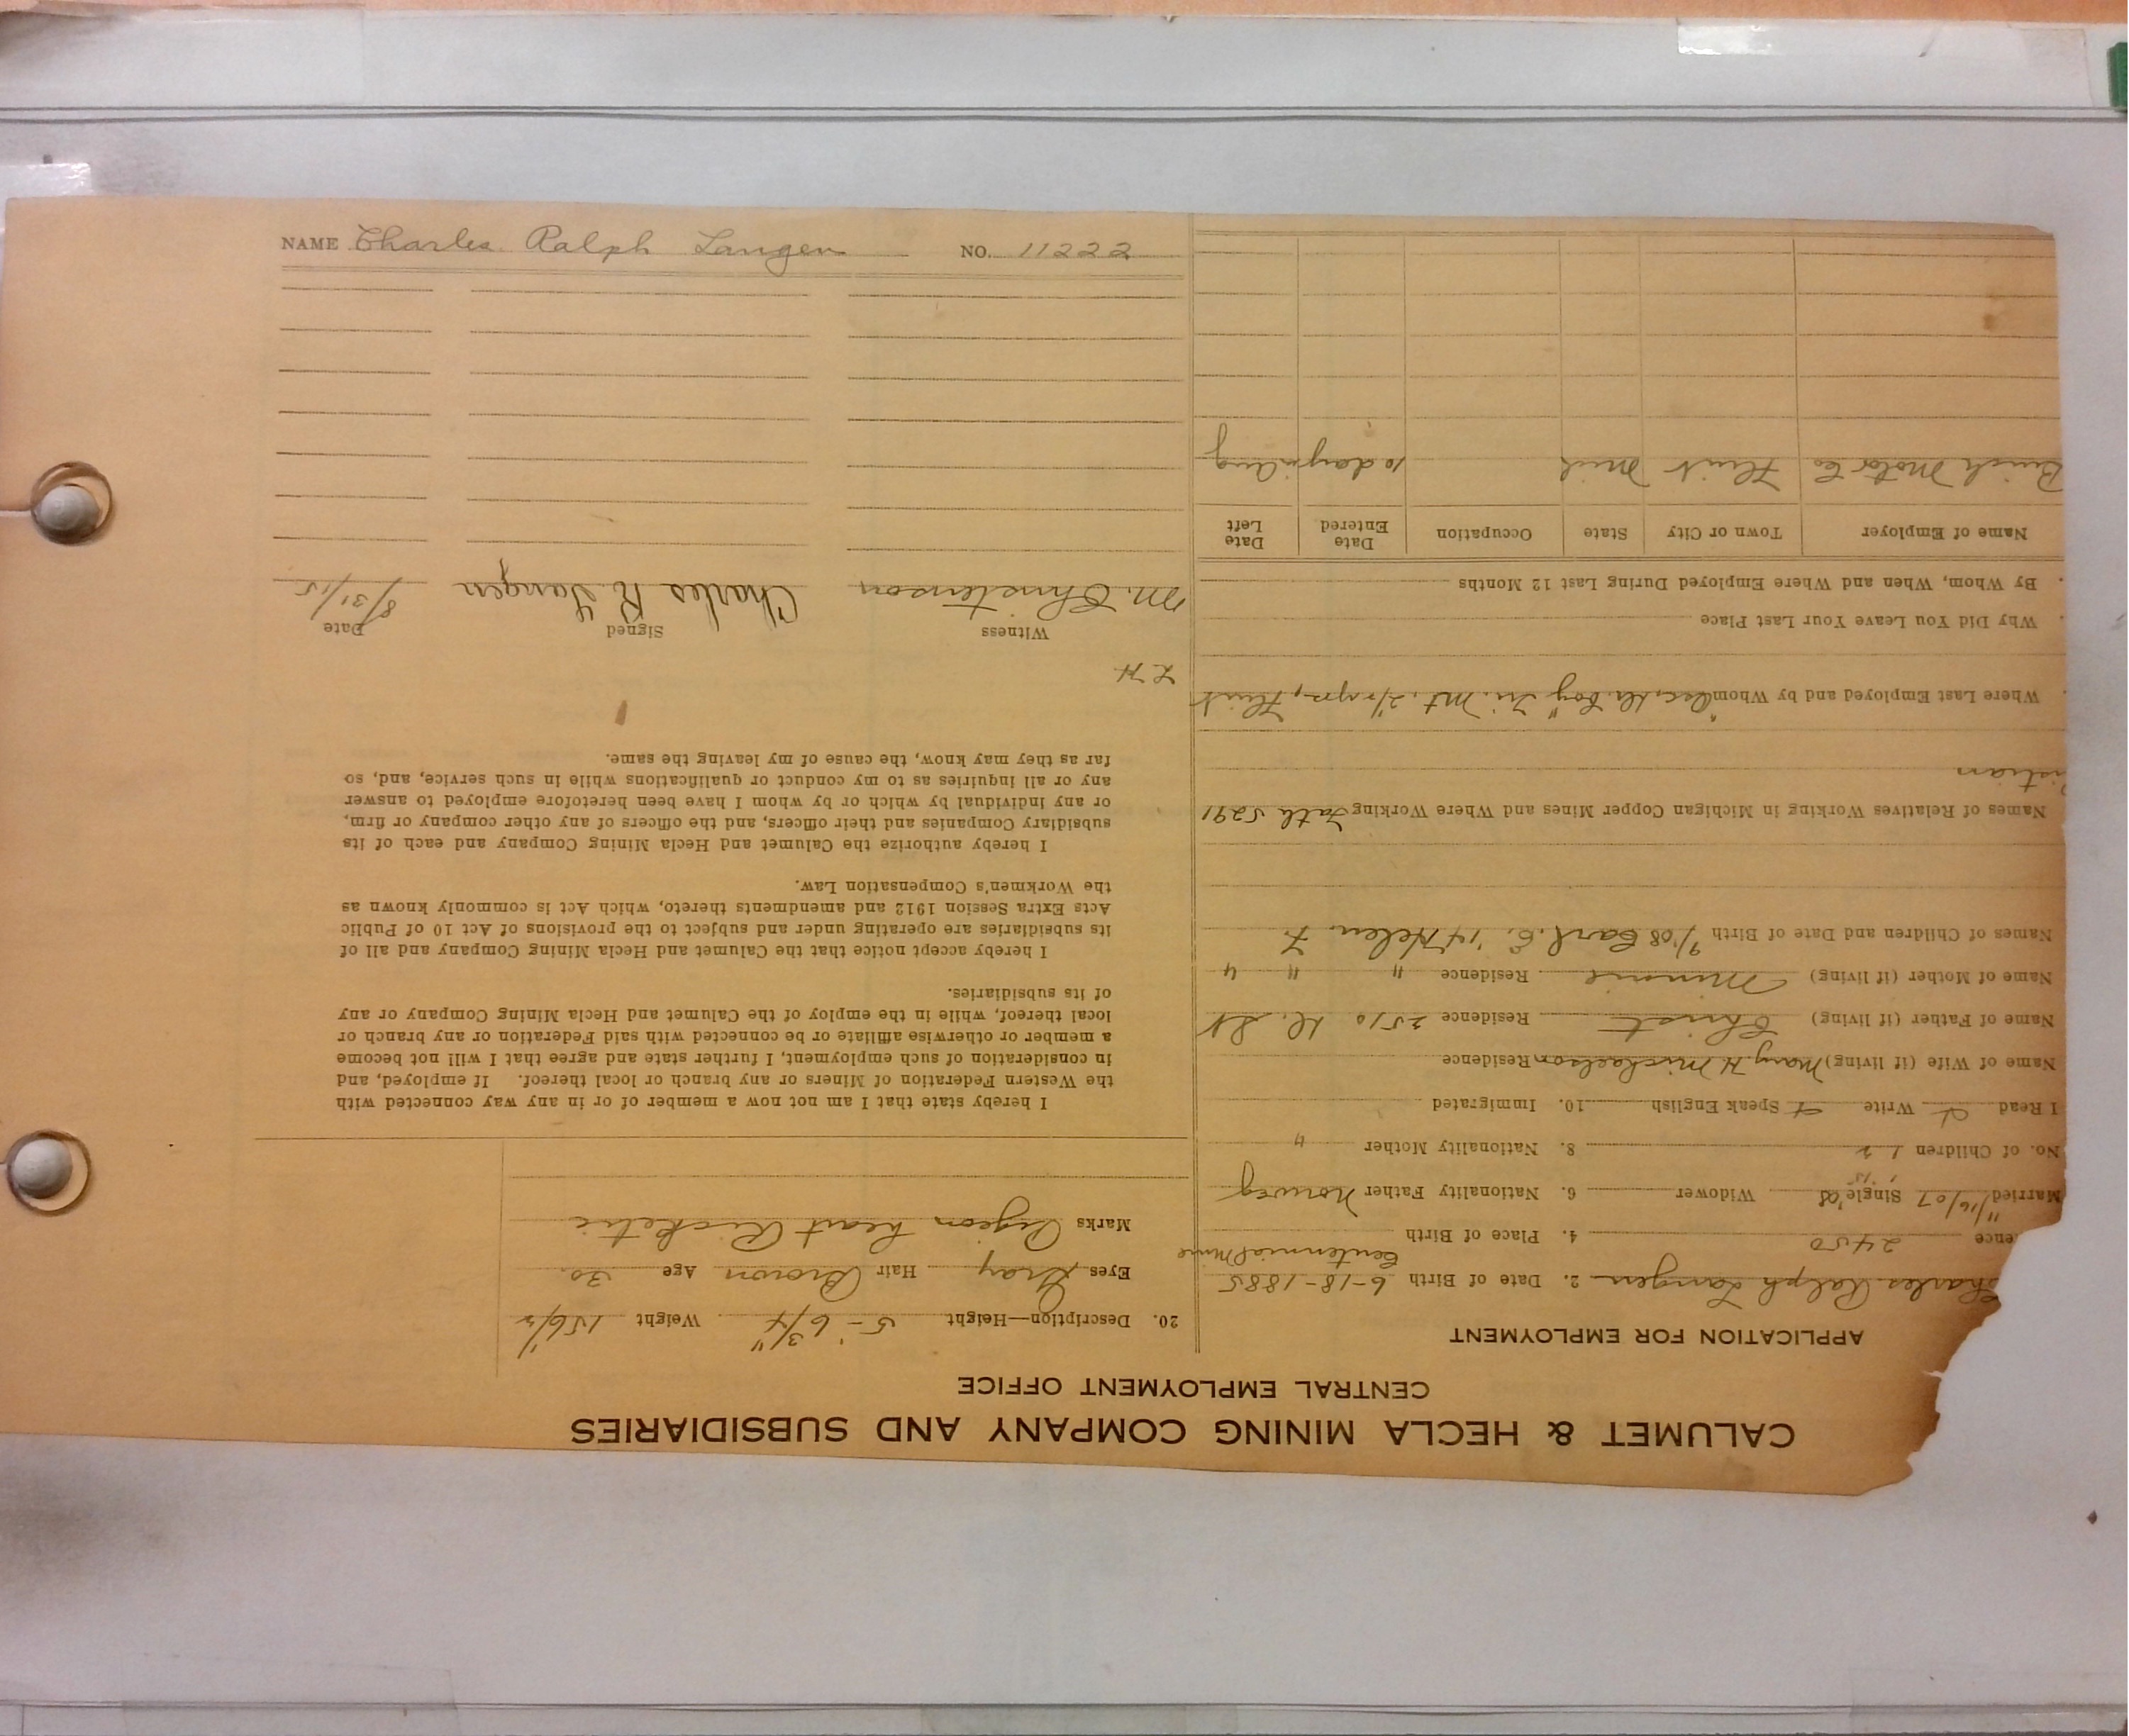 CALUMET & HECLA MINING COMPANY AND SUBSIDIARIES
CENTRAL EMPLOYMENT OFFICE
APPLICATION FOR EMPLOYMENT
Charles Ralph Langen 2. Date of Birth 6-18-1885
ence 2450 4. Place of Birth Centennial Mine
Married 11/16/07 Single Widower 6. Nationality Father Norweg
No. of Children 1 2 8. Nationality Mother "
I Read Write Speak English 10. Immigrated
Name of Wife (if living) Mary H. Michaelson Residence
Name of Father (if living) Christ Residence 2510 St
Name of Mother (if living) Minnie Residence " " "
Names of Children and Date of Birth 9/'08 Carl. E. '14 Helen. F
Names of Relatives Working in Michigan Copper Mines and Where Working Fath 5291
istian
Where Last Employed and by Whom Tri. Mt. Flint
Why Did You Leave Your Last Place
By Whom, When and Where Employed During Last 12 Months
Name of Employer Town or City State Occupation Date Entered Date Left
Buick Motor Co Flint Mich 10 days in Aug
20. Description—Height 5-6 3/4" Weight 156 1/2
Eyes Gray Hair Brown Age 30.
Marks Pigeon heart Ricketic
I hereby state that I am not now a member of or in any way connected with
the Western Federation of Miners or any branch or local thereof. If employed, and
in consideration of such employment, I further state and agree that I will not become
a member or otherwise affiliate or be connected with said Federation or any branch or
local thereof, while in the employ of the Calumet and Hecla Mining Company or any
of its subsidiaries.
I hereby accept notice that the Calumet and Hecla Mining Company and all of
its subsidiaries are operating under and subject to the provisions of Act 10 of Public
Acts Extra Session 1912 and amendments thereto, which Act is commonly known as
the Workmen's Compensation Law.
I hereby authorize the Calumet and Hecla Mining Company and each of its
subsidiary Companies and their officers, and the officers of any other company or firm,
or any individual by which or by whom I have been heretofore employed to answer
any or all inquiries as to my conduct or qualifications while in such service, and, so
far as they may know, the cause of my leaving the same.
Witness Signed Date
M. Christenson Charles R. Langen 8/31/15
NAME Charles Ralph Langen NO. 11222